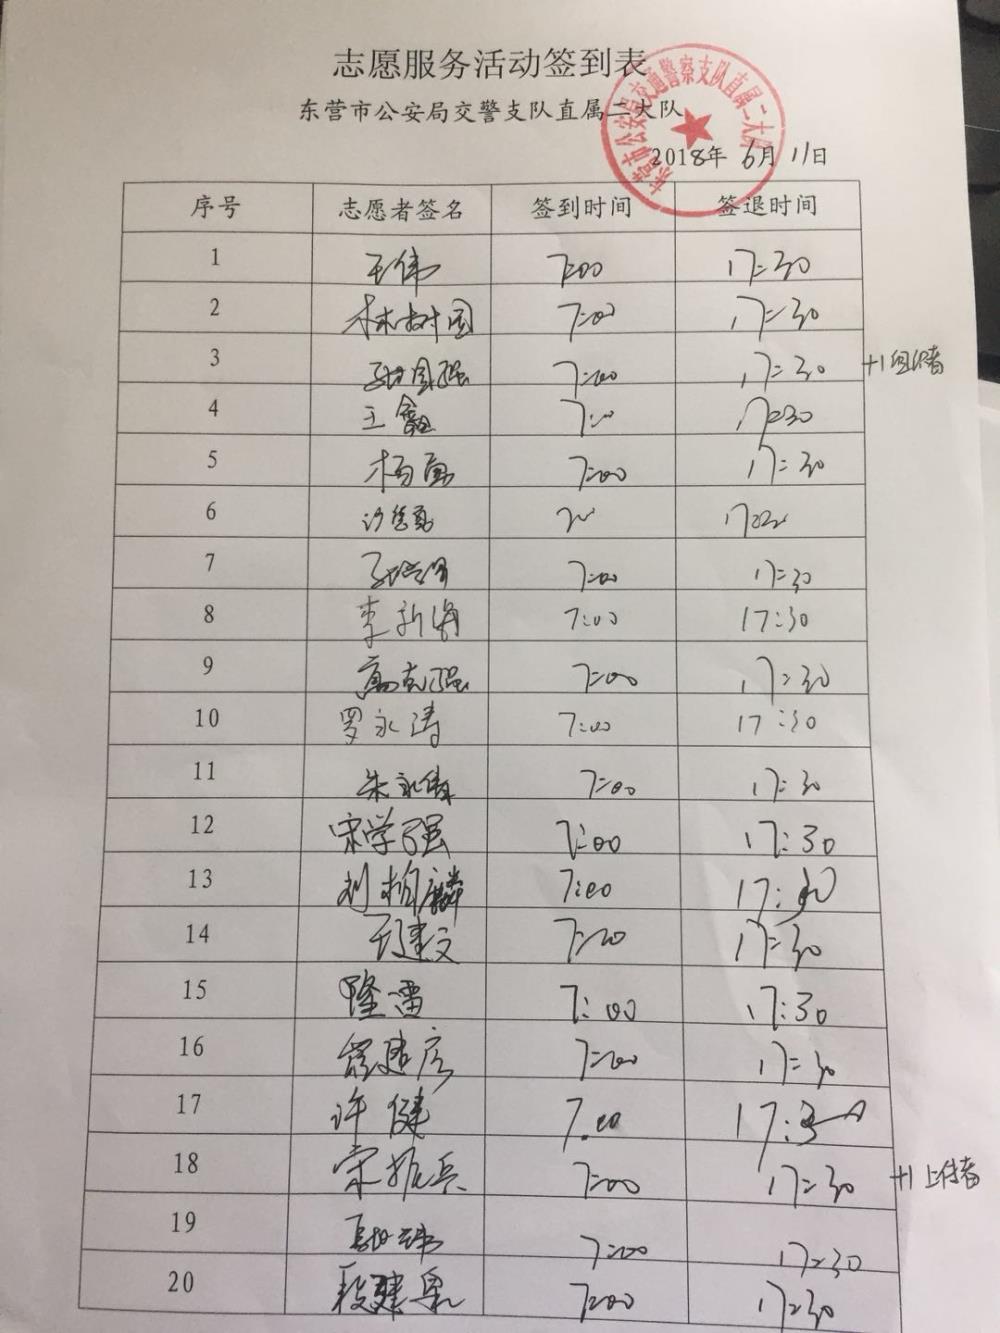 志愿服务活动签到表
东营市公安局交警支队直属二大队
东营市公安局交通警察支队直属二大队
2018年 6月 11日
序号 志愿者签名 签到时间 签退时间
1 王伟 7:00 17:30
2 林树国 7:00 17:30
3 国强 7:00 17:30 +1 组织者
4 王鑫 7:00 17:30
5 杨勇 7:00 17:30
6
7 7:00 17:30
8 李新海 7:00 17:30
9 高克强 7:00 17:30
10 罗永涛 7:00 17:30
11 朱永伟 7:00 17:30
12 宋学强 7:00 17:30
13 刘柏麟 7:00 17:30
14 王建文 7:00 17:30
15 隆雷 7:00 17:30
16 建房 7:00 17:30
17 许健 7:00 17:30
18 宋振兵 7:00 17:30 +1 上传者
19 7:00 17:30
20 段建泉 7:00 17:30